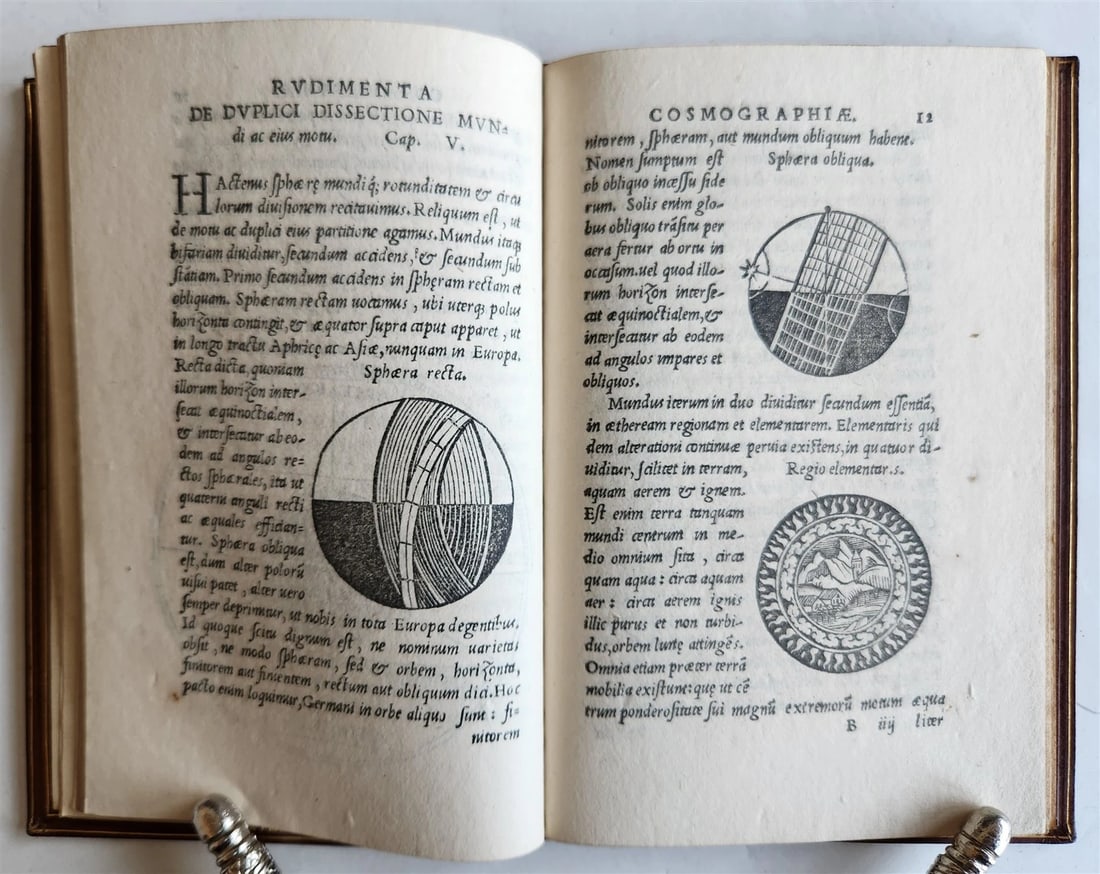 RVDIMENTA
DE DVPLICI DISSECTIONE MVN-
di ac eius motu. Cap. V.
HActenus sphærę mundi q́; rotunditatem & circu
lorum diuisionem recitauimus. Reliquum est, ut
de motu ac duplici eius partitione agamus. Mundus itaq;
bifariam diuiditur, secundum accidens, & secundum sub
stātiam. Primo secundum accidens in sphęram rectam et
obliquam. Sphæram rectam uocamus, ubi uterq; polus
horizonta contingit, & æquator supra caput apparet, ut
in longo tractu Aphricę ac Asiæ, nunquam in Europa.
Recta dicta, quoniam
Sphæra recta.
illorum horizon inter-
secat æquinoctialem,
& intersecatur ab eo-
dem ad angulos re=
ctos sphærales, ita ut
quaterni anguli recti
ac æquales effician=
tur. Sphæra obliqua
est, dum alter polorū
uisui patet, alter uero
semper deprimitur, ut nobis in tota Europa degentibus.
Id quoque scitu dignum est, ne nominum varietas
obsit, ne modo sphæram, sed & orbem, horizonta,
finitorem aut finientem, rectum aut obliquum dici. Hoc
pacto enim loquimur, Germani in orbe aliquo sunt: fi=
nitorem
COSMOGRAPHIÆ. 12
nitorem, sphæram, aut mundum obliquum habent.
Nomen sumptum est
Sphæra obliqua.
ab obliquo incessu side
rum. Solis enim glo-
bus obliquo trāsitu per
aera fertur ab ortu in
occasum. uel quod illo-
rum horizon interse-
cat æquinoctialem, &
intersecatur ab eodem
ad angulos impares et
obliquos.
Mundus iterum in duo diuiditur secundum essentiā,
in ætheream regionem et elementarem. Elementaris qui
dem alterationi continuæ peruia existens, in quatuor di-
uiditur, scilicet in terram,
Regio elementar.s.
aquam aerem & ignem.
Est enim terra tanquam
mundi centrum in me-
dio omnium sita, circa
quam aqua: circa aquam
aer: circa aerem ignis
illic purus et non turbi-
dus, orbem lunę attingēs.
Omnia etiam præter terrā
mobilia existunt: quę ut cē
trum ponderositate sui magnū extremorū motum æqua
B iij liter